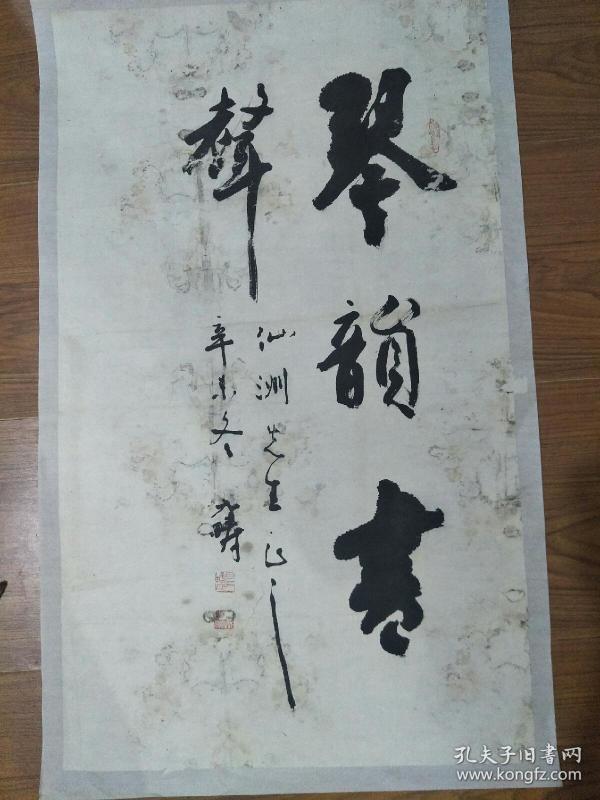 琴韻書
聲
仙洲先生正之
辛未冬九疇
孔夫子旧書网
www.kongfz.com